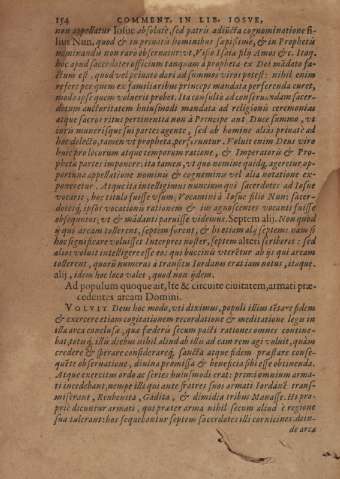 154 COMMENT. IN LIB. IOSVE,
non appellatur Iosue absolutè, sed patris adiūcta cognominatione fi-
lius Nun, quod & in priuatis hominibus sæpissimè, & in Prophetis
nominandis non raro obseruatur: vt, Visio Isaiæ filij Amos &c. Itaq.
hoc apud sacerdotes officium tanquam à propheta ex Dei mādato fa-
ctum est, quod vel priuato dari ad summos viros potest: nihil enim
refert per quem ex familiaribus princeps mandata perferenda curet,
modo ipse quem voluerit probet. Ita consultò ad conseruandam sacer-
dotum auctoritatem huiusmodi mandata ad religionis ceremonias
atque sacros ritus pertinentia non à Principe aut Duce summo, vt
sui munerisque sui partes agente, sed ab homine aliàs priuato ad
hoc delecto, tamen vt propheta, perferuntur. Voluit enim Deus viro
huic pro locorum atque temporum ratione, & Imperatoris & Pro-
phetæ partes imponere: ita tamen, vt quo nomine quidq. ageret, op-
portuna appellatione nominis & cognominis vel alia notatione ex-
poneretur. Atque ita intelligimus nuncium qui sacerdotes ad Iosue
vocaris, hoc titulo fuisse vsum; Vocamini à Iosue filio Nun: sacer-
dotesq. ipsos vocationis rationem & ius agnoscentes vocanti fuisse
obsequutos, vt & mādanti paruisse videmus. Septem alij. Non quod
ij qui arcam tollerent, septem forent, & hi etiam alij septem: nam si
hoc significare voluisset Interpres noster, septem alteri scriberet: sed
alios voluit intelligere esse eos qui buccinis vterētur ab ijs qui arcam
tollerent, quorū numerus à transitu Iordanis erat iam notus, itaque
alij, idem hoc loco valet, quod non ijdem.
Ad populum quoque ait, Ite & circuite ciuitatem, armati præ-
cedentes arcam Domini.
VOLVIT Deus hoc modo, vti diximus, populi illius
& exercere etiam cogitationem recordatione & meditatione legis in
illa arca conclusæ, qua fœderis secum pacti rationes omnes contine-
bat, totūq. illis diebus nihil aliud ab illis ad eam rem agi voluit, quàm
credere & sperare considerareq. sancta atque fidem præstare conse-
quēte obseruatione, diuina promissa & beneficia sibi esse obtinenda.
Atque exercitus ordo ac series huiusmodi erat: primi omnium arma-
ti incedebant, nempe illi qui ante fratres suos armati Iordanē trans-
miserant, Reubenitæ, Gaditæ, & dimidia tribus Manasse. Hi pro-
priè dicuntur armati, qui præter arma nihil secum aliud è regione
sua tulerant: hos sequebantur septem sacerdotes illi cornicines, dein-
de arca